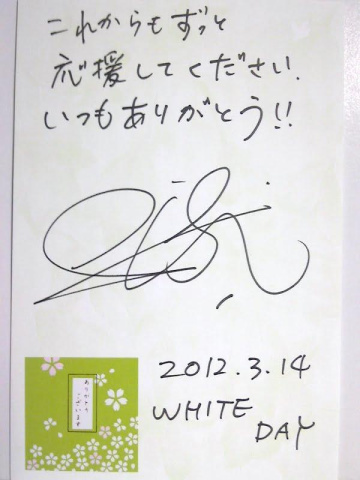 これからもずっと
応援してください.
いつもありがとう!!
ありがとう
ございます
2012.3.14
WHITE
DAY